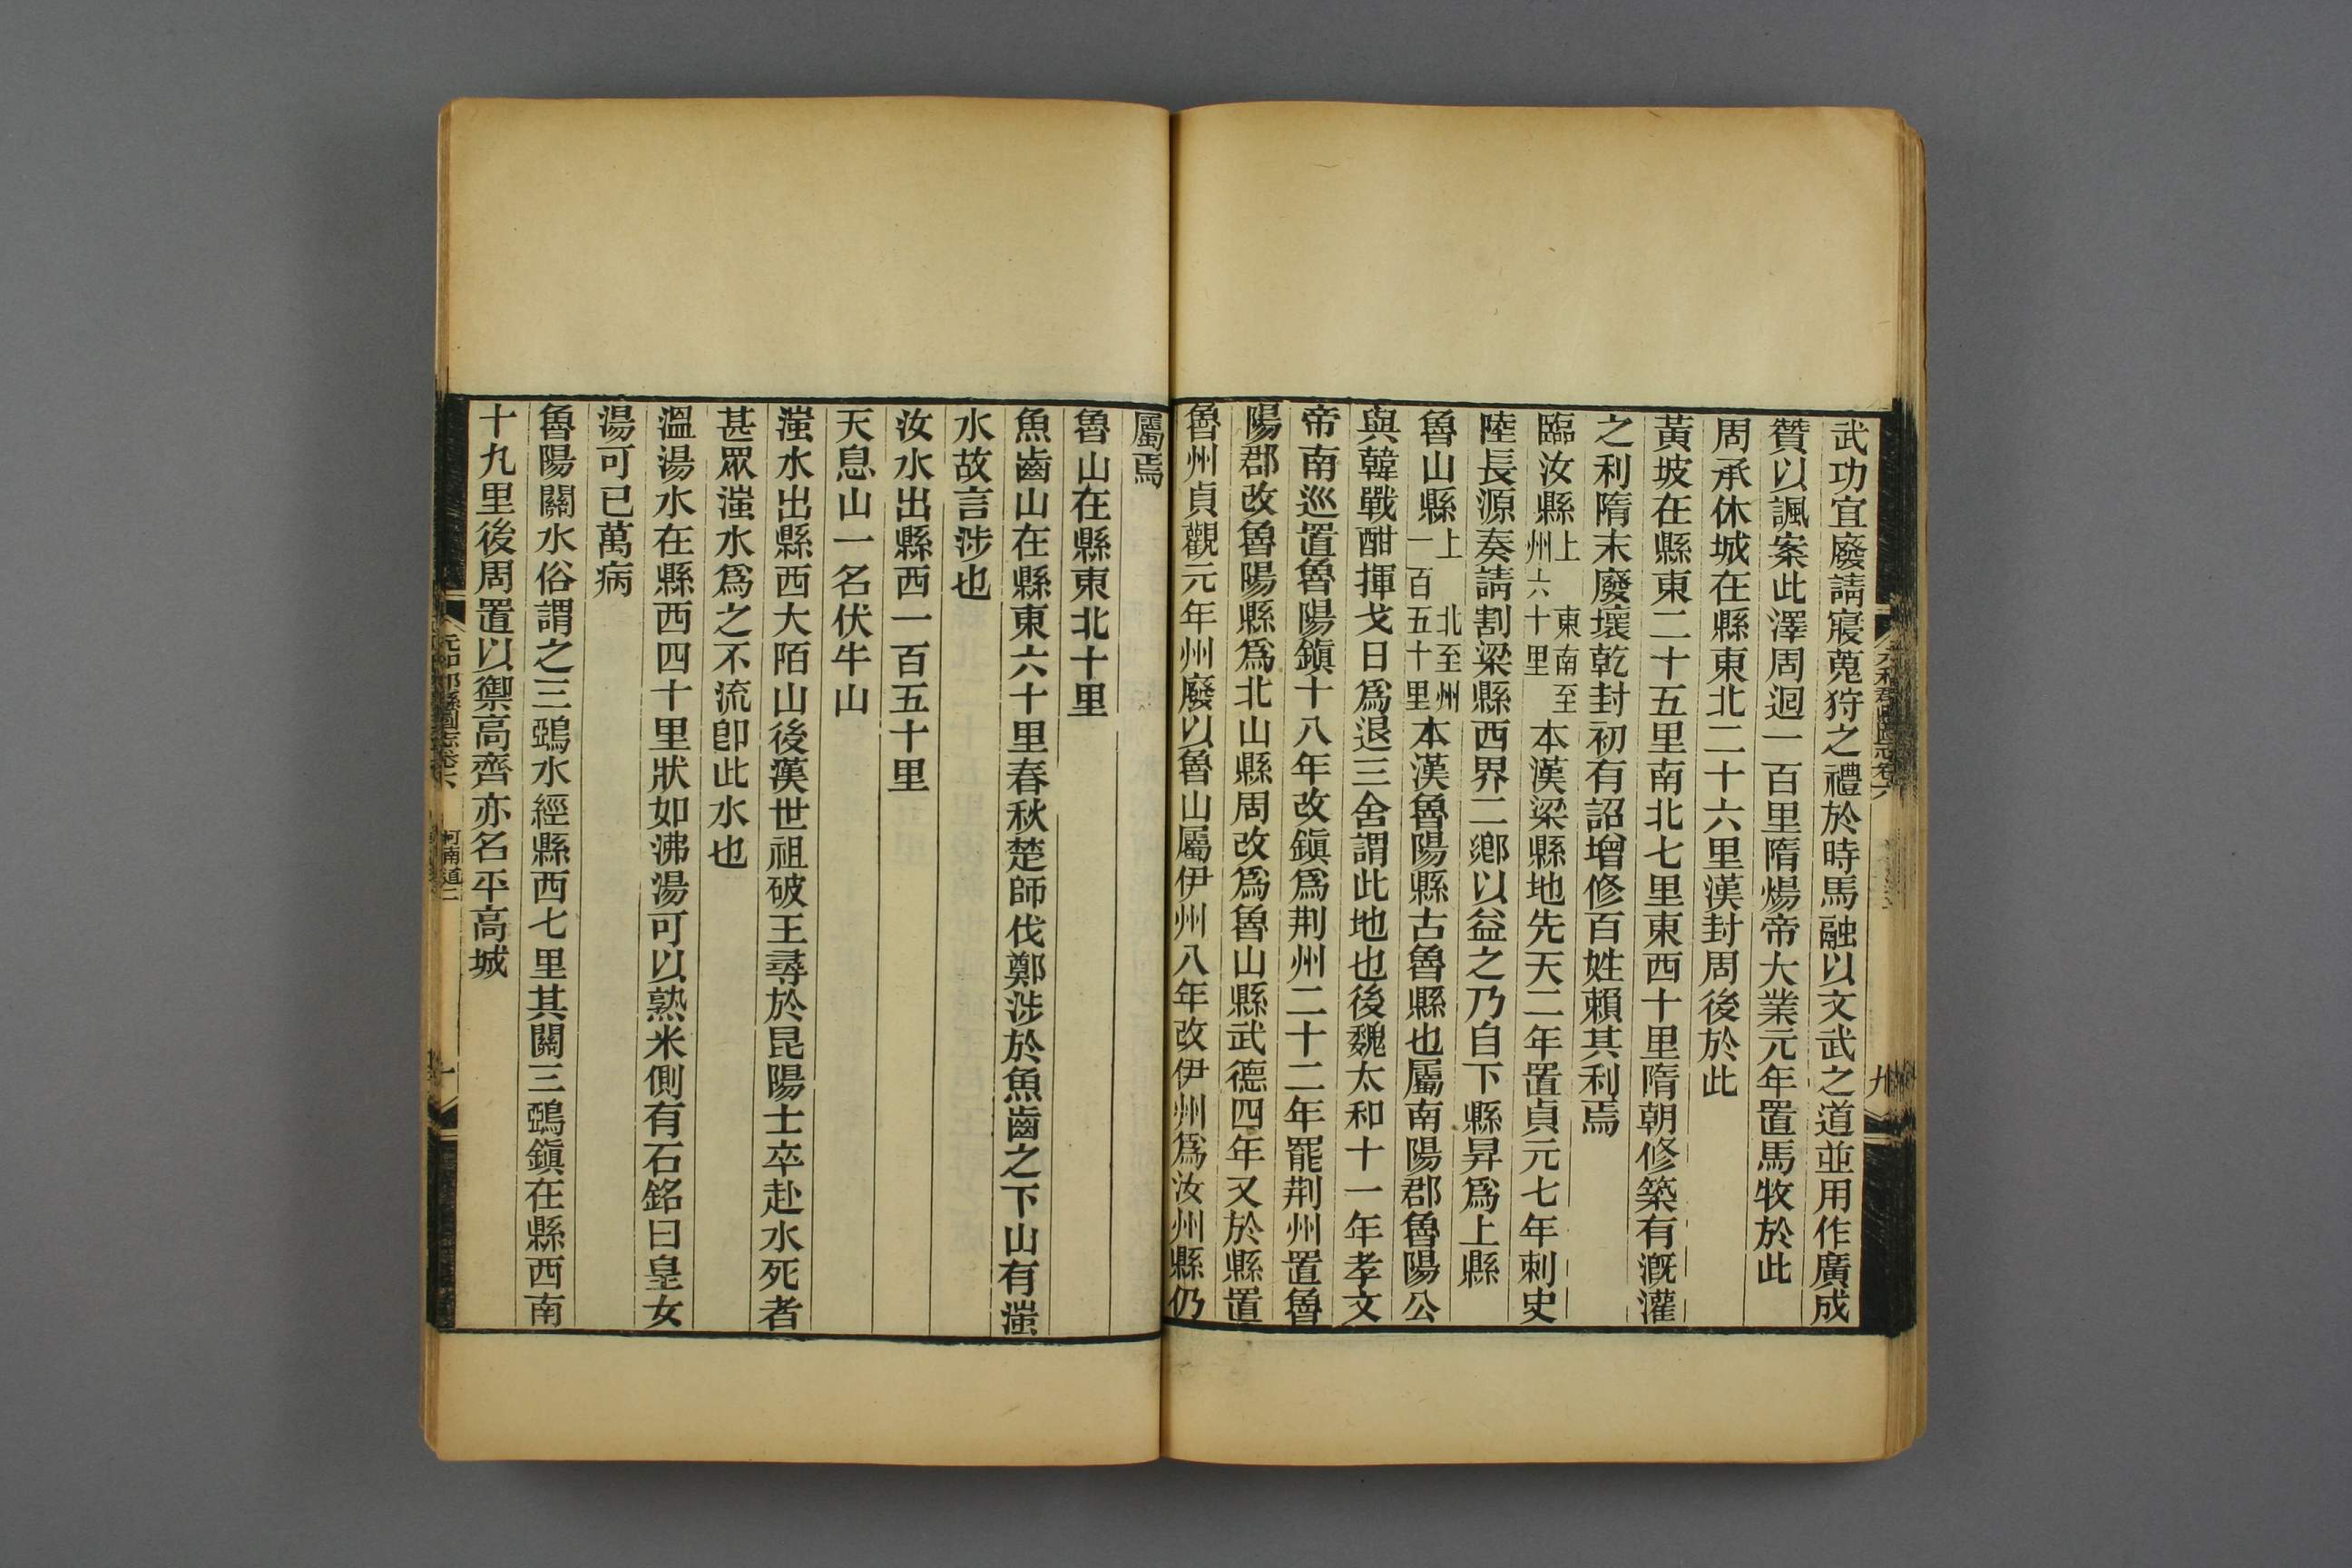 武功宜廢請寢蒐狩之禮於時馬融以文武之道並用作廣成
贊以諷案此澤周迴一百里隋煬帝大業元年置馬牧於此
周承休城在縣東北二十六里漢封周後於此
黃坡在縣東二十五里南北七里東西十里隋朝修築有溉灌
之利隋末廢壞乾封初有詔增修百姓賴其利焉
臨汝縣上 東南至州六十里 本漢梁縣地先天二年置貞元七年刺史
陸長源奏請割梁縣西界二鄉以益之乃自下縣昇爲上縣
魯山縣上 北至州一百五十里 本漢魯陽縣古魯縣也屬南陽郡魯陽公
與韓戰酣揮戈日爲退三舍謂此地也後魏太和十一年孝文
帝南巡置魯陽鎮十八年改鎮爲荆州二十二年罷荆州置魯
陽郡改魯陽縣爲北山縣周改爲魯山縣武德四年又於縣置
魯州貞觀元年州廢以魯山屬伊州八年改伊州爲汝州縣仍
屬焉
魯山在縣東北十里
魚齒山在縣東六十里春秋楚師伐鄭涉於魚齒之下山有滍
水故言涉也
汝水出縣西一百五十里
天息山一名伏牛山
滍水出縣西大陌山後漢世祖破王尋於昆陽士卒赴水死者
甚眾滍水爲之不流卽此水也
溫湯水在縣西四十里狀如沸湯可以熟米側有石銘曰皇女
湯可已萬病
魯陽關水俗謂之三鵶水經縣西七里其關三鵶鎮在縣西南
十九里後周置以禦高齊亦名平高城
元和郡縣圖志卷六 河南道二